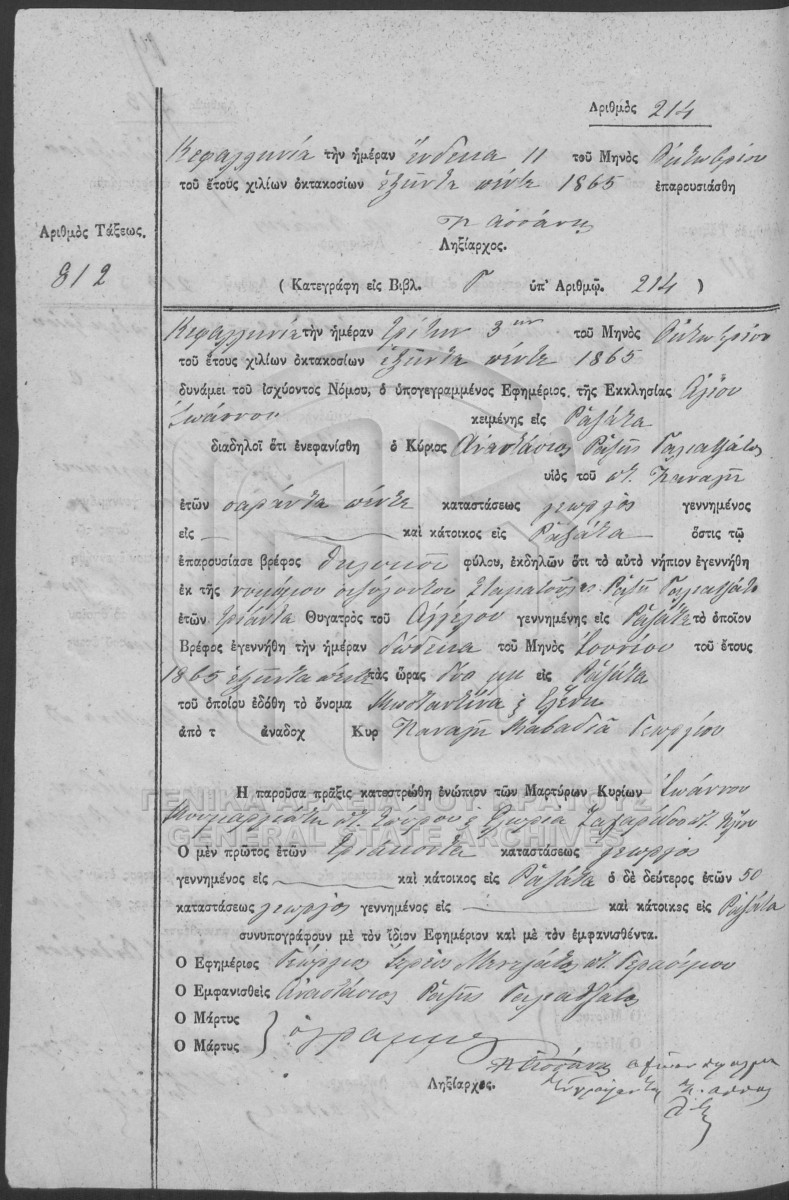 Ἀριθμὸς 214
Κεφαλληνία τὴν ἡμέραν ἕνδεκα 11 τοῦ Μηνὸς Ὀκτωβρίου
τοῦ ἔτους χιλίων ὀκτακοσίων ἑξῆντα πέντε 1865 ἐπαρουσιάσθη
Ληξίαρχος.
Ἀριθμὸς Τάξεως.
812
( Κατεγράφη εἰς Βιβλ. Γ ὑπ' Ἀριθμῷ. 214 )
Κεφαλληνία τὴν ἡμέραν τρίτην 3ην τοῦ Μηνὸς Ὀκτωβρίου
τοῦ ἔτους χιλίων ὀκτακοσίων ἑξῆντα πέντε 1865
δυνάμει τοῦ ἰσχύοντος Νόμου, ὁ ὑπογεγραμμένος Ἐφημέριος τῆς Ἐκκλησίας Ἁγίου
Ἰωάννου κειμένης εἰς Ραζάτα
διαδηλοῖ ὅτι ἐνεφανίσθη ὁ Κύριος Ἀναστάσιος Ράζης Γαλιατζάτος
υἱὸς τοῦ ποτ. Παναγῆ
ἐτῶν σαράντα πέντε καταστάσεως γεωργὸς γεννημένος
εἰς καὶ κάτοικος εἰς Ραζάτα ὅστις τῷ
ἐπαρουσίασε βρέφος θηλυκοῦ φύλου, ἐκδηλῶν ὅτι τὸ αὐτὸ νήπιον ἐγεννήθη
ἐκ τῆς νομίμου συζύγου του Σταματούλας Ράζη Γαλιατζάτου
ἐτῶν τριάντα Θυγατρὸς τοῦ Ἀγγέλου γεννημένης εἰς Ραζάτα τὸ ὁποῖον
Βρέφος ἐγεννήθη τὴν ἡμέραν δώδεκα τοῦ Μηνὸς Ἰουνίου τοῦ ἔτους
1865 ἑξῆντα πέντε τὰς ὥρας δύο μμ εἰς Ραζάτα
τοῦ ὁποίου ἐδόθη τὸ ὄνομα Κωσταντίνα ἢ Ἑλένη
ἀπὸ τ ἀναδοχ Κυρ Παναγῆ Καβαδιᾶ Γεωργίου
Ἡ παροῦσα πρᾶξις κατεστρώθη ἐνώπιον τῶν Μαρτύρων Κυρίων Ἰωάννου
ΓΕΝΙΚΑ ΑΡΧΕΙΑ ΤΟΥ ΚΡΑΤΟΥΣ
GENERAL STATE ARCHIVES
Ὁ μὲν πρῶτος ἐτῶν τριάκοντα καταστάσεως γεωργὸς
γεννημένος εἰς καὶ κάτοικος εἰς Ραζάτα ὁ δὲ δεύτερος ἐτῶν 50
καταστάσεως γεωργὸς γεννημένος εἰς καὶ κάτοικος εἰς Ραζάτα
συνυπογράφουν μὲ τὸν ἴδιον Ἐφημέριον καὶ μὲ τὸν ἐμφανισθέντα.
Ὁ Ἐφημέριος Γεώργιος Ἱερεὺς ποτ. Γερασίμου
Ὁ Ἐμφανισθεὶς Ἀναστάσιος Ράζης Γαλιατζάτος
Ὁ Μάρτυς
Ὁ Μάρτυς ἀγράμματοι
Ληξίαρχος.